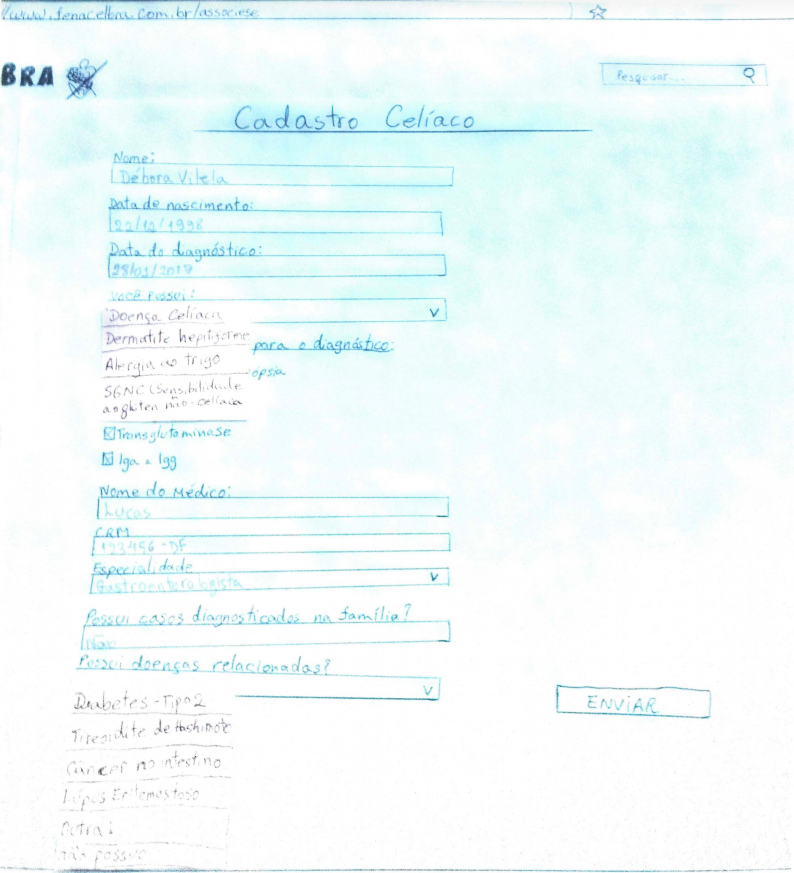 /www.fenacelbra.com.br/associese
BRA
Pesquisar...
Cadastro Celíaco
Nome:
Débora Vilela
Data de nascimento:
22/12/1998
Data do diagnóstico:
28/01/2017
Você Possui:
Doença Celíaca
V
Dermatite hepitiforme
para o diagnóstico:
Alergia ao trigo
ópsia
SGNC (Sensibilidade
ao glúten não-celíaca
Transglutaminase
Iga e Igg
Nome do Médico:
Lucas
CRM
123456-DF
Especialidade
Gastroenterologista
V
Possui casos diagnosticados na família?
Não
Possui doenças relacionadas?
V
Diabetes - Tipo 2
ENVIAR
Tireoidite de Hashimoto
Câncer no intestino
Lúpus Eritematoso
Outra:
não possuo